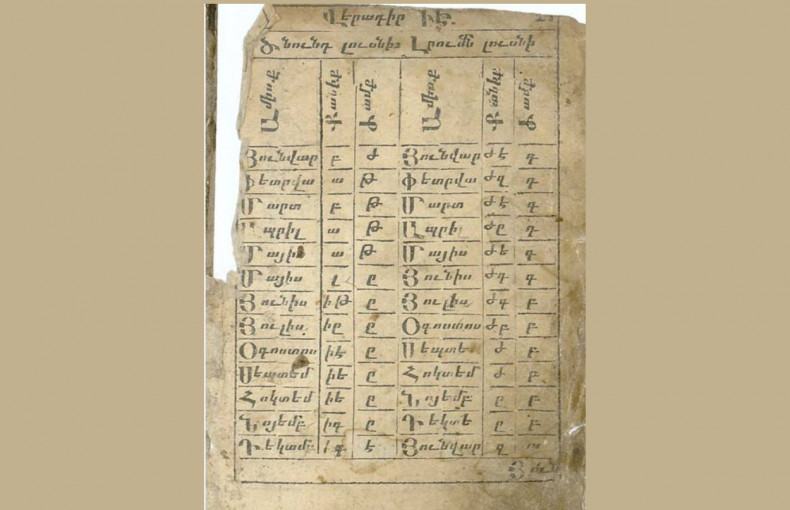 Վերադիր ԻԷ.
Ծնունդ լուսնի: Լրումն լուսնի
Ամիսք Քանիք Ժամք Ամիսք Քանիք Ժամք
Յունվար բ ժ Յունվար ժէ գ
Փետրվա ա թ Փետրվա ժզ գ
Մարտ բ թ Մարտ ժէ գ
Ապրիլ ա թ Ապրի ժը գ
Մայիս ա թ Մայիս ժե գ
Մայիս լ ը Յունիս ժդ գ
Յունիս իթ ը Յուլիս. ժգ բ
Յուլիս. իը ը Օգոստոս ժբ բ
Օգոստոս իէ ը Սեպտե ժ բ
Սեպտեմ իե ը Հոկտեմ ժ բ
Հոկտեմ իե ը Նոյեմբ ը բ
Նոյեմբ իգ ը Դեկտե ը բ
Դեկամբ իգ է Յունվար